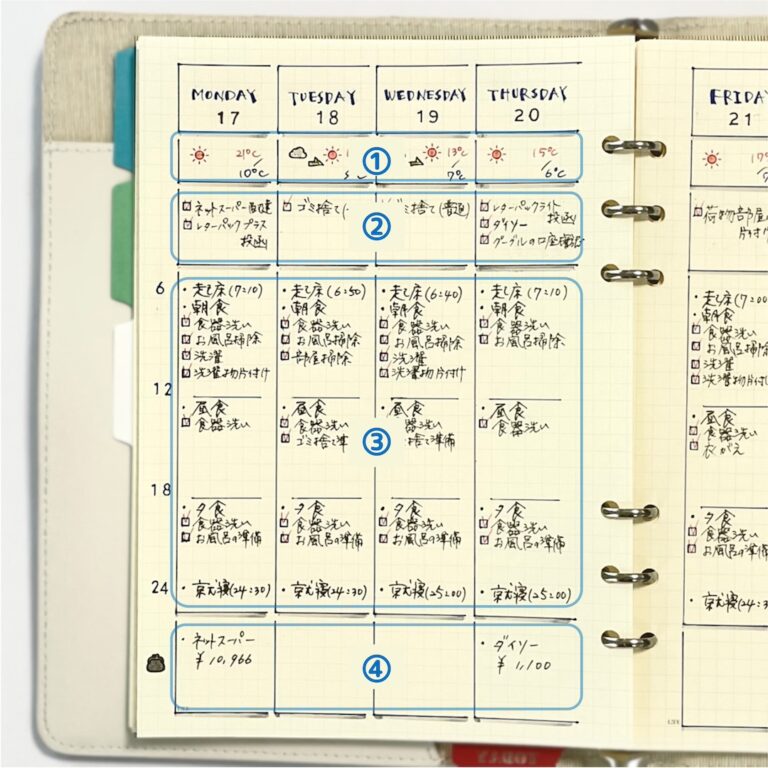 MONDAY
17
TUESDAY
18
WEDNESDAY
19
THURSDAY
20
FRIDAY
21
①
21℃/10℃
13℃/7℃
15℃/6℃
②
ネットスーパー
レターパックプラス
投函
ゴミ捨て(
ミ捨て(普通)
レターパックライト
投函
ダイソー
グーグルの口座確認
荷物部屋
片付け
③
6
12
18
24
・起床(7:10)
・朝食
食器洗い
お風呂掃除
洗濯
洗濯物片付け
・昼食
食器洗い
・夕食
食器洗い
お風呂の準備
・就寝(24:30)
・起床(6:50)
・朝食
食器洗い
お風呂掃除
部屋掃除
・昼食
食器洗い
ゴミ捨て準
・夕食
食器洗い
お風呂の準備
・就寝(24:30)
・起床(6:40)
・朝食
食器洗い
お風呂掃除
洗濯
洗濯物片付け
・昼食
器洗い
捨て準備
・夕食
食器洗い
お風呂の準備
・就寝(25:00)
・起床(7:10)
・朝食
食器洗い
お風呂掃除
・昼食
食器洗い
・夕食
食器洗い
お風呂の準備
・就寝(25:00)
・起床(7:00
・朝食
食器洗い
お風呂掃除
洗濯
洗濯物片付
・昼食
食器洗い
衣がえ
・夕食
食器洗い
お風呂の準備
・就寝(24:3
④
・ネットスーパー
¥10,966
・ダイソー
¥1,100